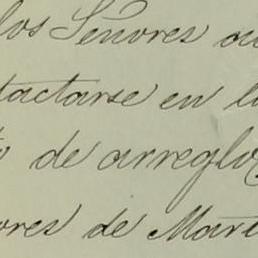 los Señores au
tactarse en l
de arreglo
ores de Mart